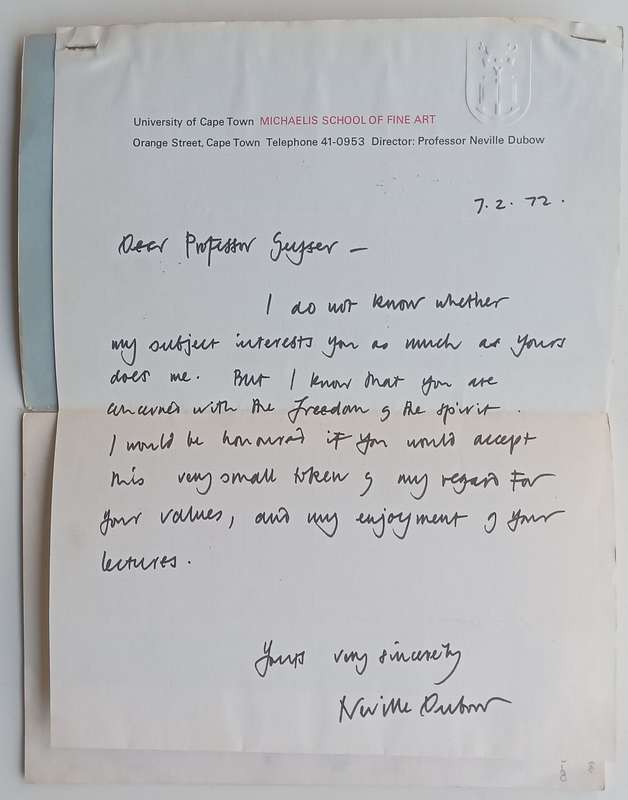 University of Cape Town MICHAELIS SCHOOL OF FINE ART
Orange Street, Cape Town Telephone 41-0953 Director: Professor Neville Dubow
7.2.72.
Dear Professor Geyser —
I do not know whether
my subject interests you as much as yours
does me. But I know that you are
concerned with the freedom of the spirit.
I would be honoured if you would accept
this very small token of my regard for
your values, and my enjoyment of your
lectures.
Yours very sincerely
Neville Dubow